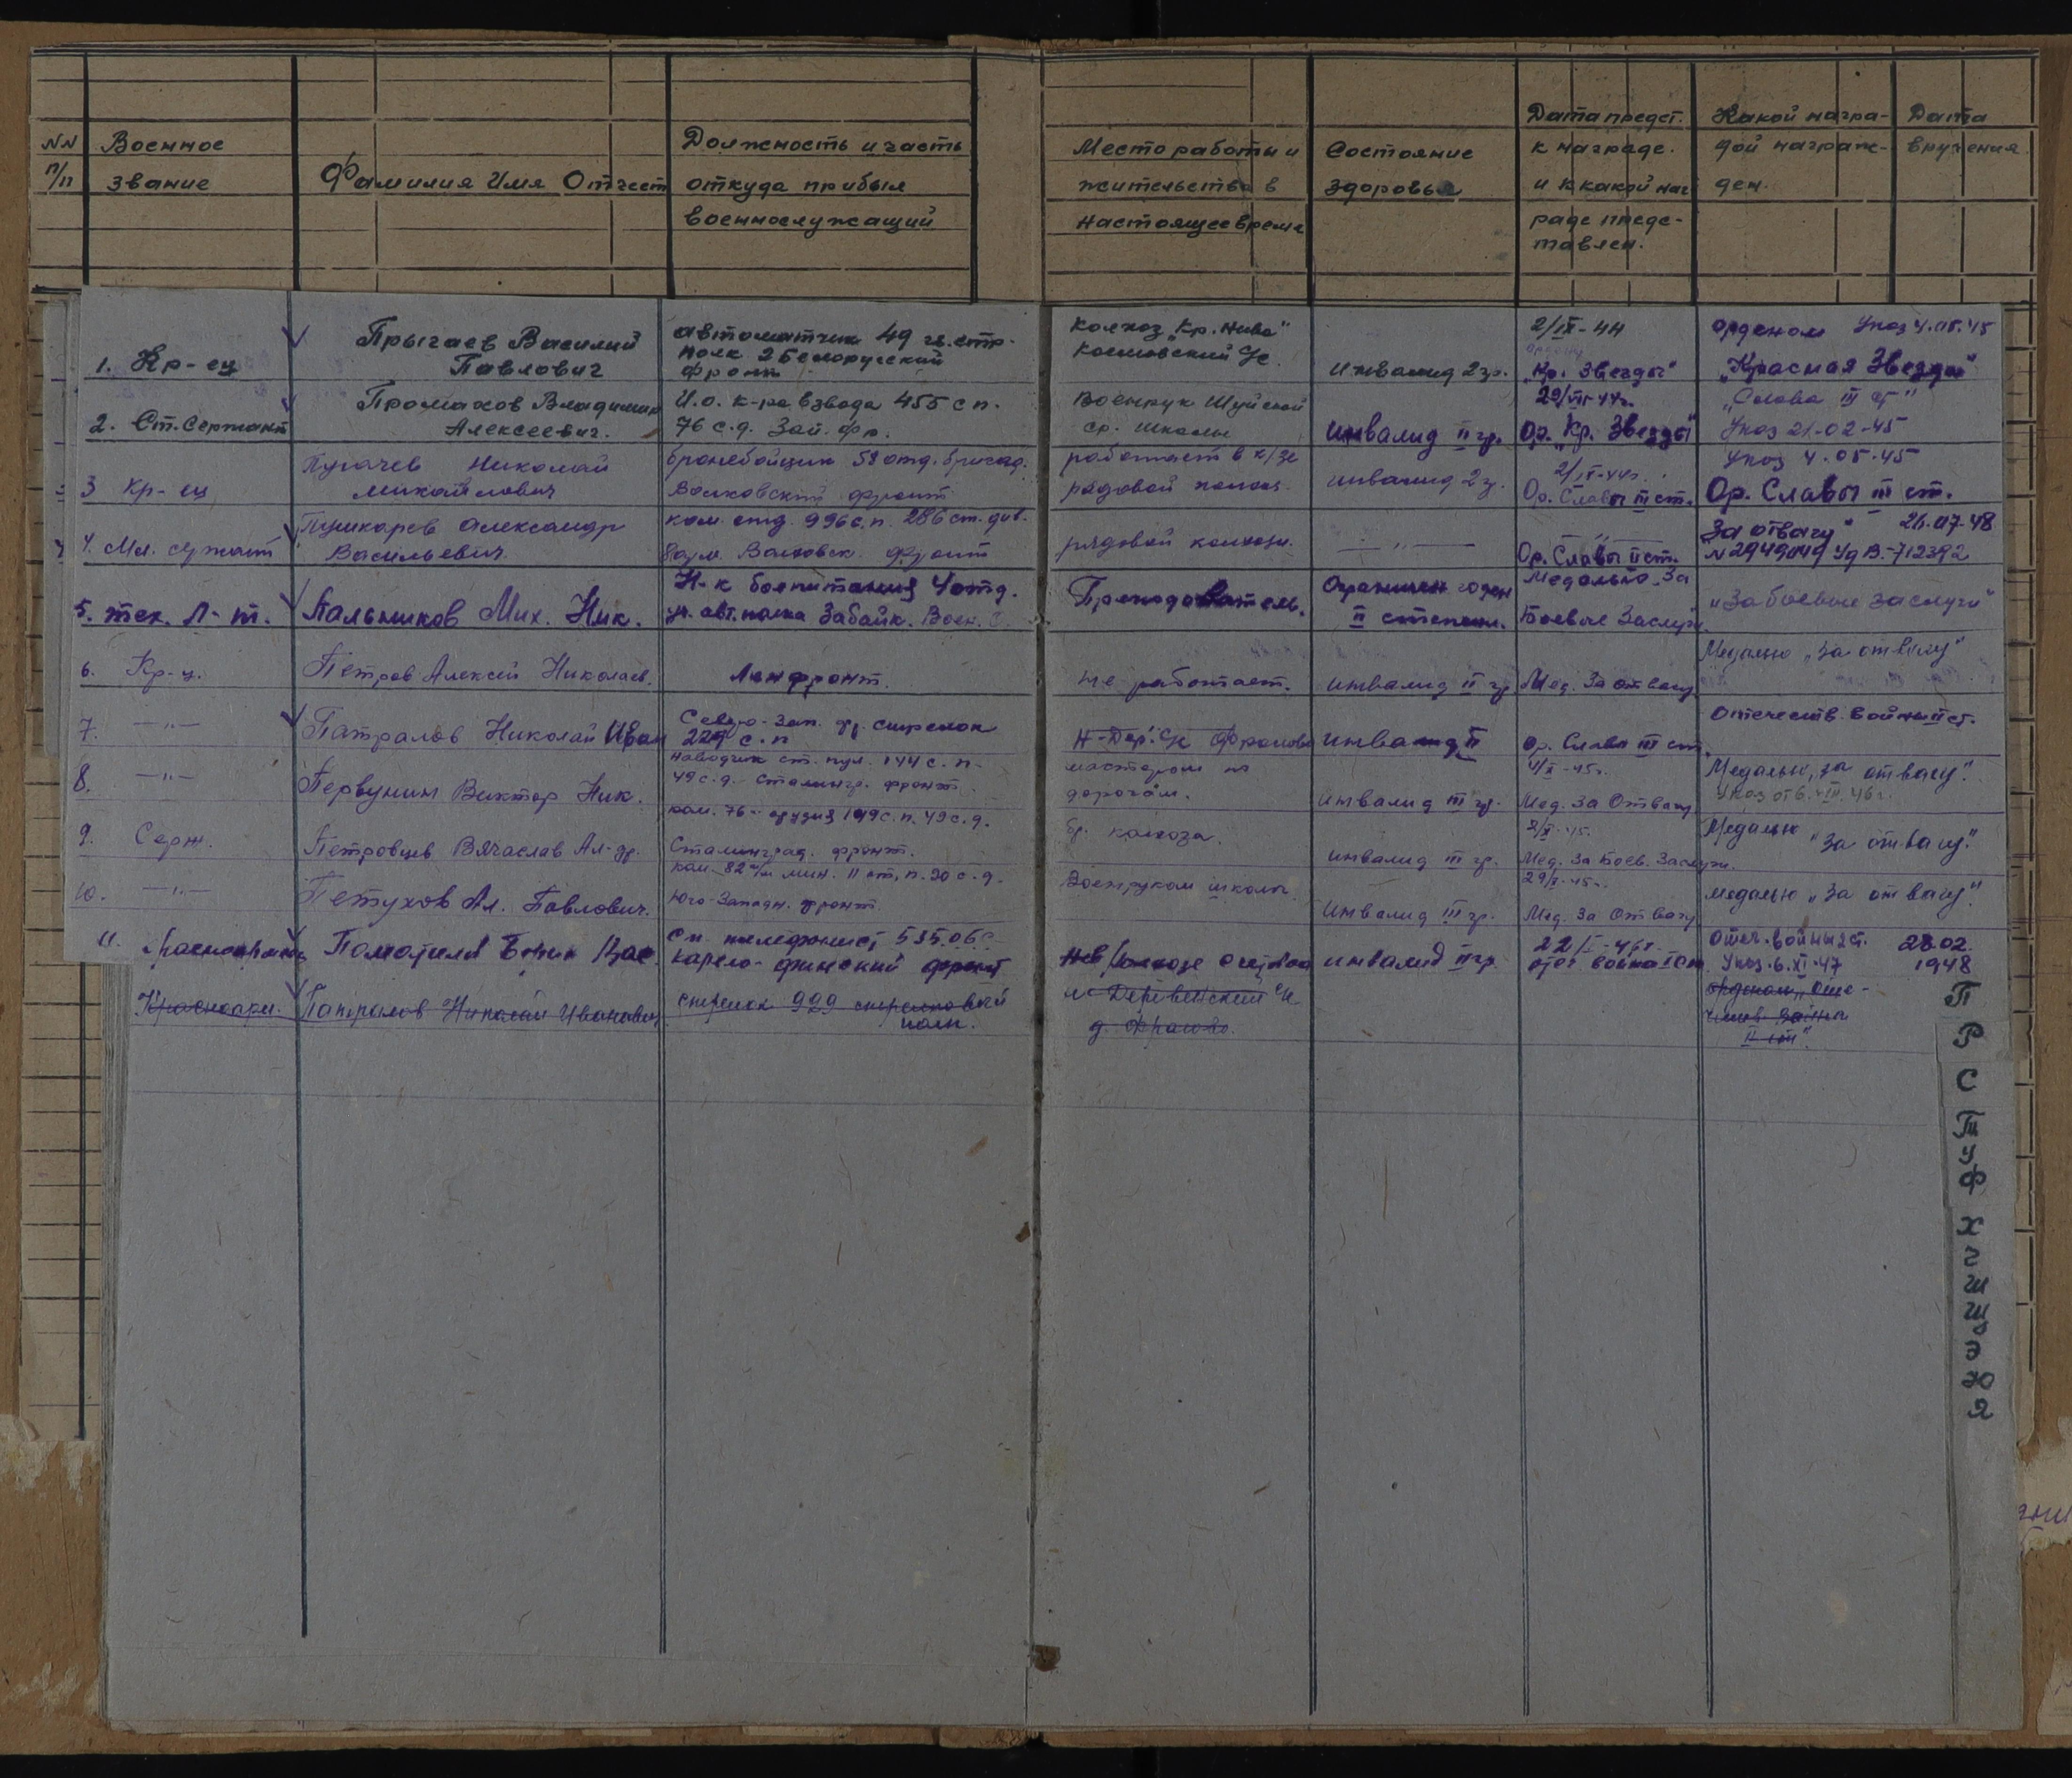 NN п/п
Военное звание
Фамилия Имя Отчест
Должность и часть откуда прибыл военнослужащий
Место работы и жительства в настоящее время
Состояние здоровья
Дата предст. к награде. и к какой наг раде предс- тавлен.
Какой награ- дой награж- ден.
Дата вручения.
1. Кр-ец Прыгаев Василий Павлович автоматчик 49 гв. стр. полк 2 Белорусский фронт колхоз "Кр. Нива" инвалид 2 гр. 2/IX-44 ордену "Кр. Звезды" орденом Указ 4.05.45 "Красная Звезда"
2. Ст. Сержант Промахов Владимир Алексеевич. И.о. к-ра взвода 455 с п. 76 с.д. Зап. фр. Военрук Шуйской ср. школы инвалид II гр. Ор. "Кр. Звезды" "Слава III ст" Указ 21-02-45
3 Кр-ец Пугачев Николай Михайлович бронебойщик 58 отд. бригад. Волховский фронт работает в к/зе рядовой колхоз. инвалид 2 г. 2/IX-44г. Ор. Славы III ст. Указ 4.05.45 Ор. Славы III ст.
4. Мл. сержант Пушкарев Александр Васильевич. ком. отд. 996 с.п. 286 ст. див. Волховск. фронт рядовой колхозн. —"— Ор. Славы III ст. "За отвагу" N 2949049 Уд В.-712392
5. тех. Л-т. Пальников Мих. Ник. Н-к боепитания 4 отд. уч. авт. полка Забайк. Воен. О. Преподаватель. Ограничен годен II степени. Медалью За Боевые Заслуги "За боевые заслуги"
6. Кр-ц. Петров Алексей Николаев. Лен фронт. Не работает. инвалид II гр Мед. За отвагу Медалью "За отвагу"
7. —"— Патралов Николай Иван Северо-Зап. фр. стрелок с.п. инвалид II Ор. Славы III ст. Отечеств. войны II ст.
8. —"— Первунин Виктор Ник. Наводчик ст. пул. 144 с. п. 49 с.д. Сталингр. фронт. мастером по дорогам. инвалид III гр. Мед. За Отвагу Медалью "за отвагу".
9. Серж. Петровцев Вячеслав Ал-др. ком. 76 орудия 149 с. п. 49 с. д. Сталинград. фронт. бр. колхоза. инвалид III гр. Мед. За Боев. Заслуги. Медалью "За отвагу".
10. —"— Петухов Ал. Павлович. Юго-Западн. фронт. Военруком школы инвалид III гр. Мед. За Отвагу медалью "За отвагу".
11. Карело-финский фронт инвалид II гр Отеч. войны 2 ст. Указ. 6.XI.47 28.02. 1948
Красноарм. Патралов Николай Иванович стрелок 929 стрелковый полк. II ст".
П
Р
С
Т
У
Ф
Х
Ч
Ш
Щ
Э
Ю
Я